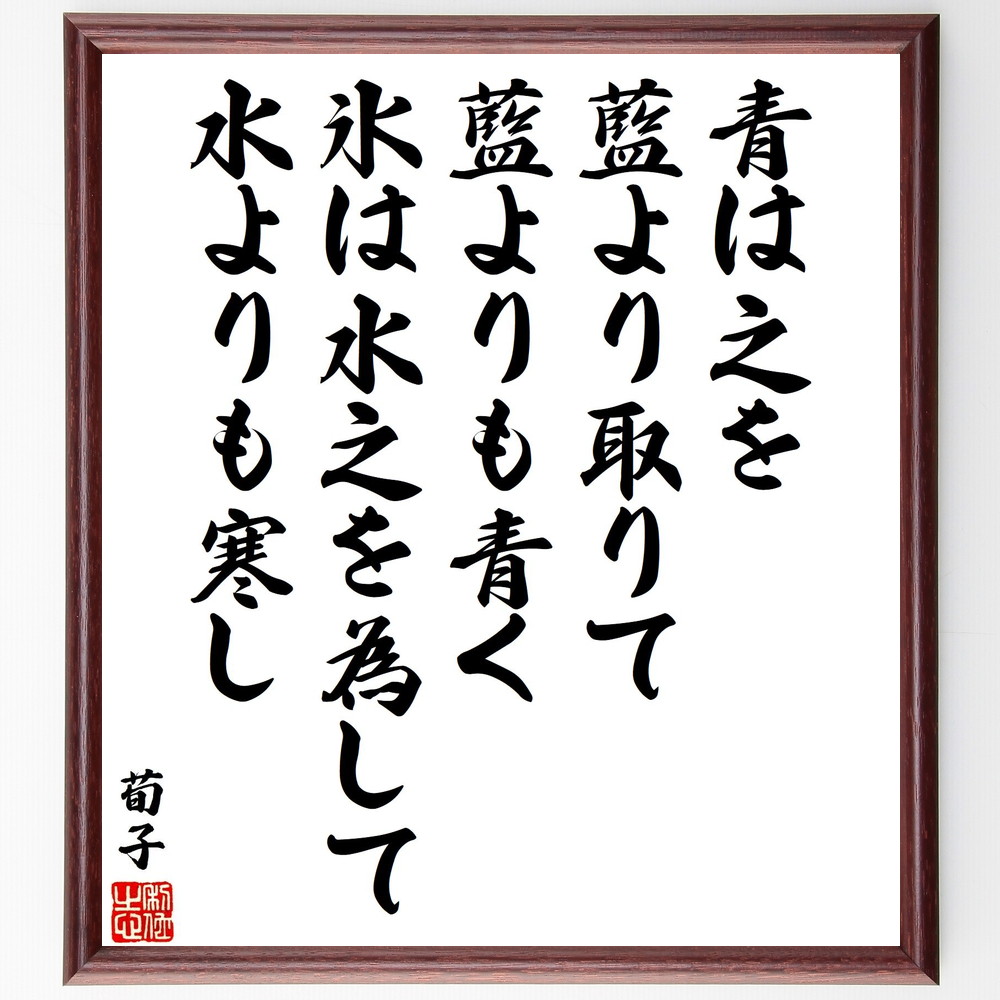 青は之を
藍より取りて
藍よりも青く
氷は水之を為して
水よりも寒し
荀子